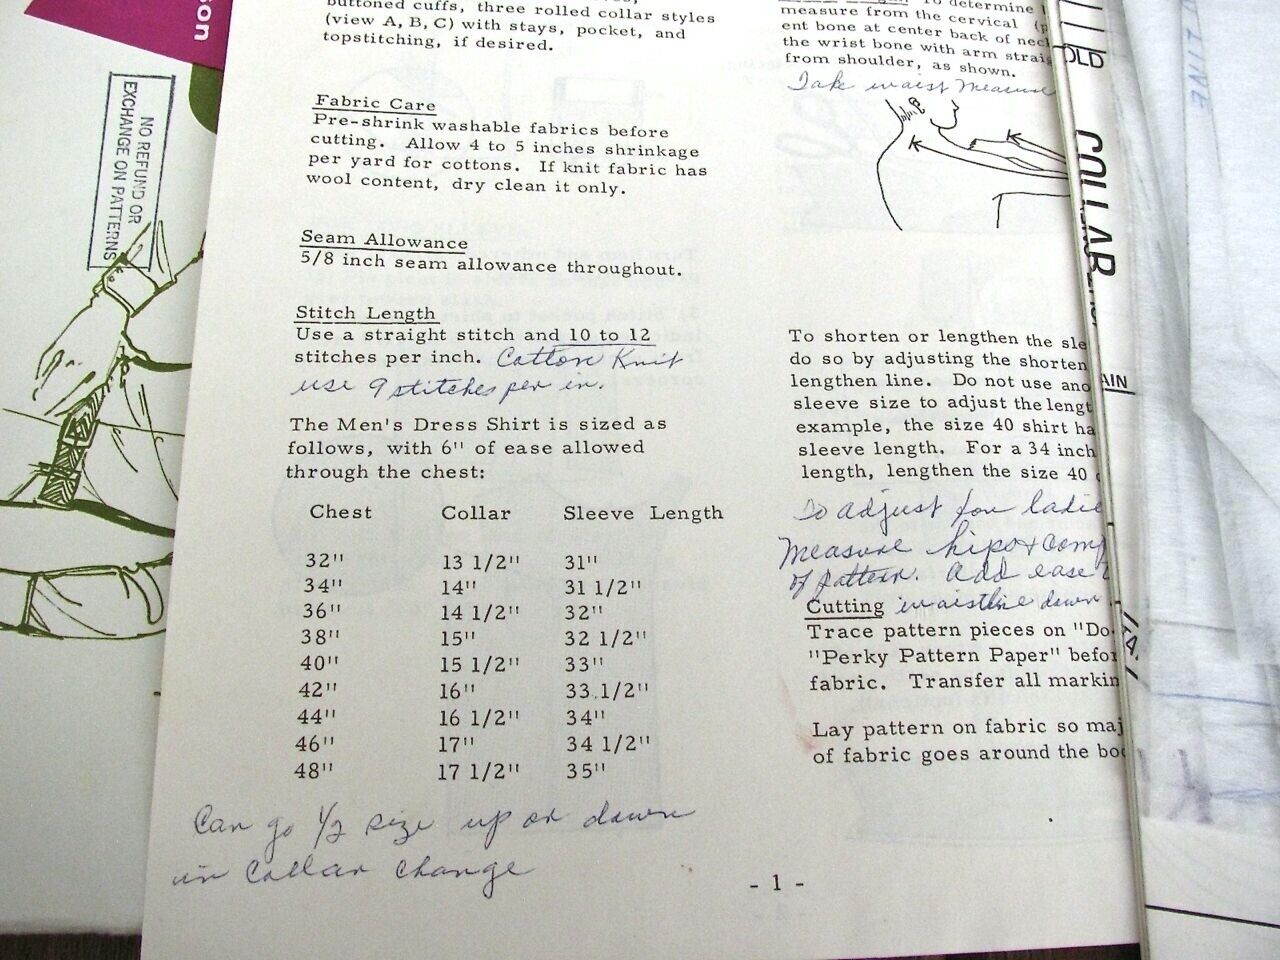 son
NO REFUND OR
EXCHANGE ON PATTERNS
buttoned cuffs, three rolled collar styles
(view A, B, C) with stays, pocket, and
topstitching, if desired.
Fabric Care
Pre-shrink washable fabrics before
cutting. Allow 4 to 5 inches shrinkage
per yard for cottons. If knit fabric has
wool content, dry clean it only.
Seam Allowance
5/8 inch seam allowance throughout.
Stitch Length
Use a straight stitch and 10 to 12
stitches per inch. Cotton Knit
use 9 stitches per in.
The Men's Dress Shirt is sized as
follows, with 6" of ease allowed
through the chest:
Chest Collar Sleeve Length
32" 13 1/2" 31"
34" 14" 31 1/2"
36" 14 1/2" 32"
38" 15" 32 1/2"
40" 15 1/2" 33"
42" 16" 33 1/2"
44" 16 1/2" 34"
46" 17" 34 1/2"
48" 17 1/2" 35"
Can go 1/2 size up or down
in Collar change
To determine
measure from the cervical (p
ent bone at center back of nec
the wrist bone with arm straig
from shoulder, as shown.
Take waist measure
To shorten or lengthen the sle
do so by adjusting the shorten
lengthen line. Do not use ano
sleeve size to adjust the lengt
example, the size 40 shirt ha
sleeve length. For a 34 inch
length, lengthen the size 40
To adjust for ladie
Measure hips & comp
of pattern. Add ease
Cutting waistline down
Trace pattern pieces on "Do
"Perky Pattern Paper" befo
fabric. Transfer all markin
Lay pattern on fabric so maj
of fabric goes around the bo
- 1 -
OLD
COLLAR
AIN
LINE